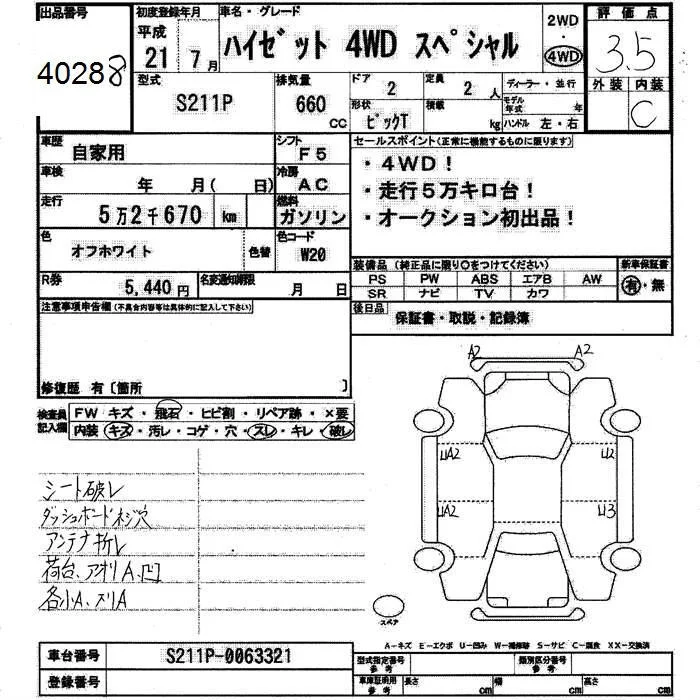 出品番号
40288
初度登録年月
平成
21 7月
車名・グレード
ハイゼット 4WD スペシャル
2WD
・
4WD
評価点
3.5
外装 内装
C
型式
S211P
排気量
660
CC
ドア 2
定員 2 人
ディーラー・並行
形状 ピックT
積載 kg
モデル年式 年
ハンドル 左・右
車歴 自家用
シフト F5
車検 年 月( 日)
冷房 AC
走行 5万2千670 km
燃料 ガソリン
色 オフホワイト 色替
色コード W20
R券 5,440円
名変通知期限 月 日
セールスポイント(正常に機能するものに限ります)
・4WD!
・走行5万キロ台!
・オークション初出品!
装備品(純正品に限り○をつけてください)
新車保証書
PS PW ABS エアB AW
SR ナビ TV カワ
有・無
後日品 保証書・取説・記録簿
注意事項申告欄(不具合内容等は具体的に記入して下さい)
修復歴 有〔箇所 〕
検査員記入欄
FW キズ・飛石・ヒビ割・リペア跡・×要
内装 キズ・汚レ・コゲ・穴・スレ・キレ・破レ
シート破レ
ダッシュボードネジ穴
アンテナ折レ
荷台、アオリA、凹
各小A、スリA
A2 A2
UA2 U2
UA2 U3
スペア
A-キズ E-エクボ U-凹み W-補修跡 S-サビ C-腐食 XX-交換済
車台番号 S211P-0063321
登録番号
型式指定番号 参考
類別区分番号 参考
車庫証明用 参考
長さ cm 幅 cm 高さ cm